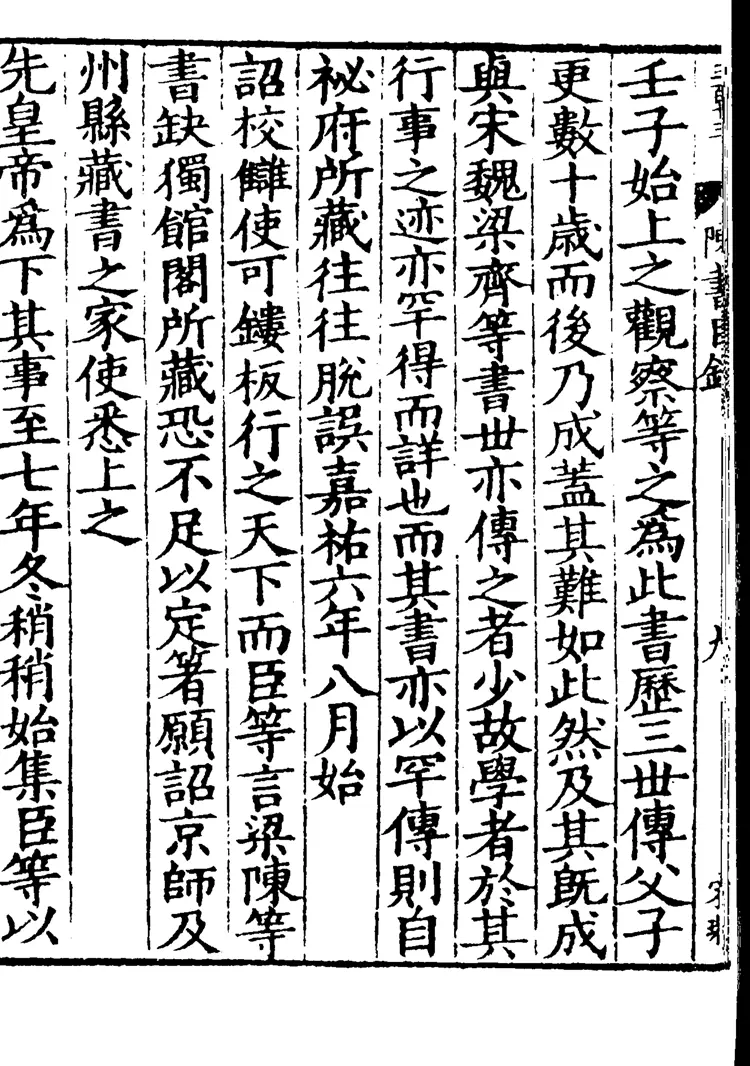 陳書目錄
壬子始上之觀察等之爲此書歷三世傳父子
更數十歲而後乃成蓋其難如此然及其旣成
與宋魏梁齊等書世亦傳之者少故學者於其
行事之迹亦罕得而詳也而其書亦以罕傳則自
祕府所藏往往脫誤嘉祐六年八月始
詔校讎使可鏤板行之天下而臣等言梁陳等
書缺獨館閣所藏恐不足以定著願詔京師及
州縣藏書之家使悉上之
先皇帝爲下其事至七年冬稍稍始集臣等以